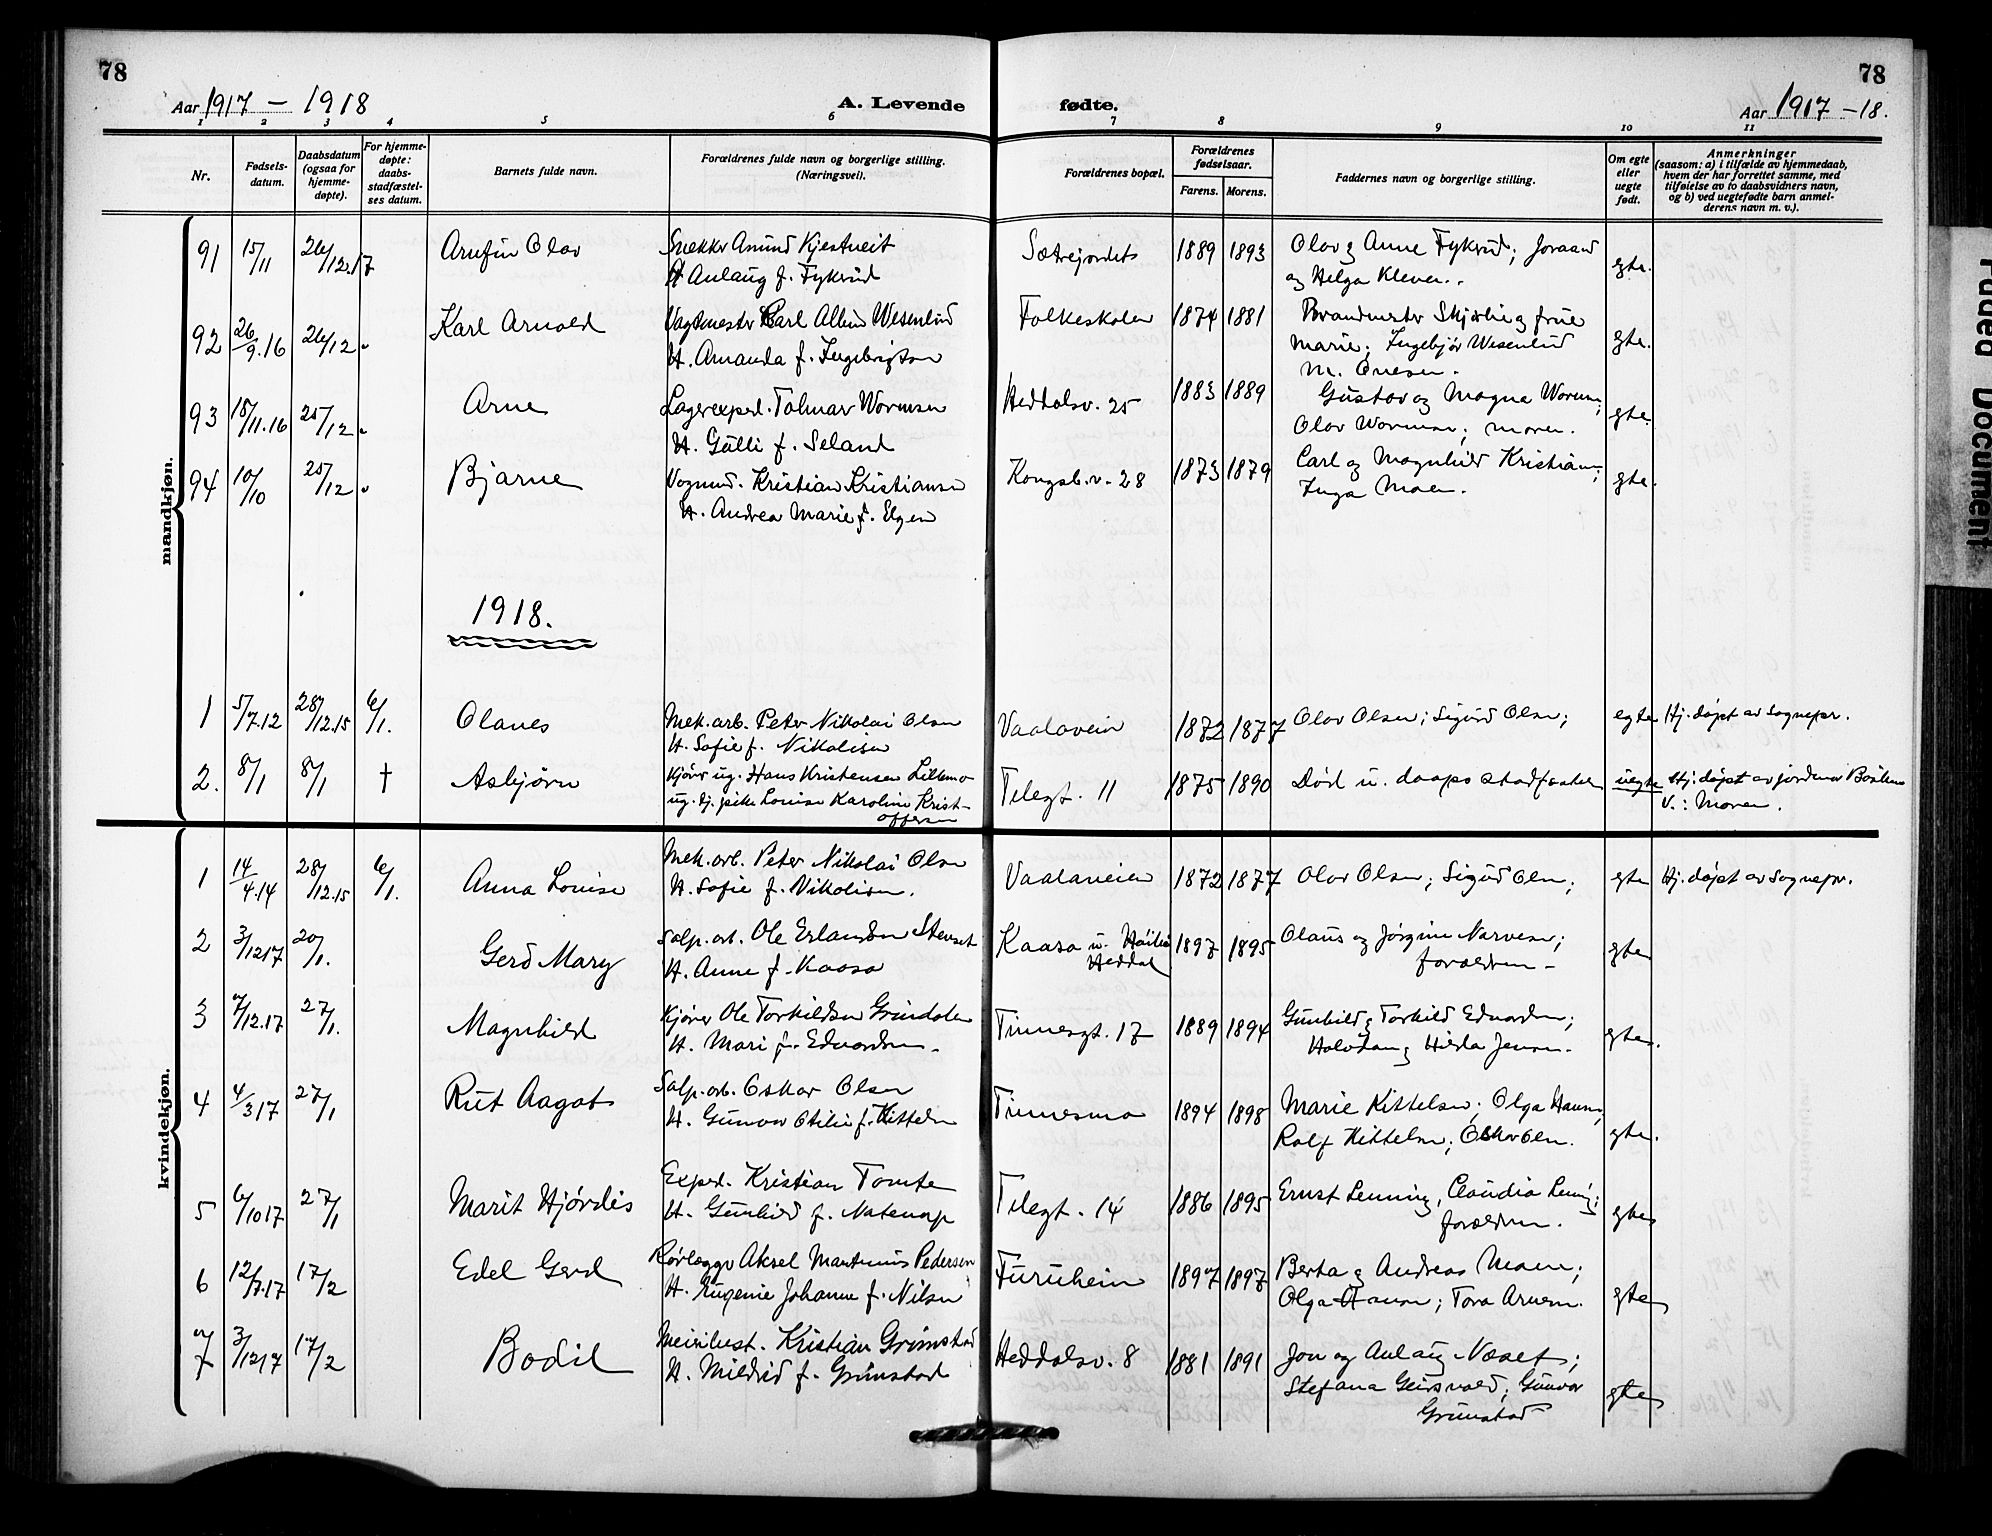 78
78
Aar 1917 - 1918
A. Levende fødte.
Aar 1917 - 18.
1 2 3 4 5 6 7 8 9 10 11
Nr.
Fødsels-
datum.
Daabsdatum
(ogsaa for
hjemme-
døpte).
For hjemme-
døpte:
daabs-
stadfæstel-
ses datum.
Barnets fulde navn.
Forældrenes fulde navn og borgerlige stilling.
(Næringsvei).
Forældrenes bopæl.
Forældrenes
fødselsaar.
Farens. Morens.
Faddernes navn og borgerlige stilling.
Om egte
eller
uegte
født.
Anmerkninger
(saasom: a) i tilfælde av hjemmedaab,
hvem der har forrettet samme, med
tilføielse av to daabsvidners navn,
og b) ved uegtefødte barn anmel-
derens navn m. v.).
mandkjøn.
91 15/11 26/12.17 Arnfin Olav Snekker Amund Kjestveit Sætrejordet 1889 1893 Olav og Anne Fykerud; Joraand egte.
H. Anlaug f. Fykerud og Helga Kleven.
92 26/9.16 26/12 " Karl Arnold Vagtmester Carl Albin Wesenlund Folkeskolen 1874 1881 Brandmester Skjælie og frue egte.
H. Amanda f. Ingebrigtsen Marie; Ingebjør Wesenlund
M. Onesen.
93 18/11.16 25/12 " Arne Lagerexped. Tolmar Wormsen Heddalsv. 25 1883 1889 Gustav og Magna Worms; egte.
H. Gulli f. Seland Olav Wormsen; moren.
94 10/10 25/12 " Bjarne Vognmd. Kristian Kristiansen Kongsb.v. 28 1873 1879 Carl og Magnhild Kristians; egte.
H. Andrea Marie f. Elgen Inga Moen.
1918.
1 5/7.12 28/12.15 6/1. Olanes Mek. arb. Peter Nikolai Olsen Vaalavein 1872 1877 Olav Olsen; Sigurd Olsen; egte Hj. døpt av sognepr.
H. Sofie f. Nikolisen
2. 8/1 8/1 † Asbjørn Kjører ug. Hans Kristensen Lillemo Telegt. 11 1875 1890 Død u. daaps stadfæstelse uegte Hj. døpt av jordmor
ug. tj. pike Louise Karoline Krist- V.: Moren.
offersen
kvindekjøn.
1 14/4.14 28/12.15 6/1. Anna Louise Mek. arb. Peter Nikolai Olsen Vaalaveien 1872 1877 Olav Olsen; Sigurd Olsen; egte Hj. døpt av sognepr.
H. Sofie f. Nikolisen.
2 3/1217 20/1. Gerd Mary Salp. arb. Ole Erlandsen Kaasa u. 1897 1895 Olaus og Jørgine Narvesen; egte
H. Anne f. Kaasa Heddal forældrene -
3 7/12.17 27/1. Magnhild Kjører Ole Torkildsen Grindalen Tinnesgt. 17 1889 1894 Gunhild og Torkild Edvardsen; egte.
H. Mari f. Edvardsen. Halvdan og Hilda Jensen.
4 4/317 27/1 Rut Aagot Salp. arb. Oskar Olsen Tinnesmo 1894 1898 Marie Kittelsen; Olga Hansen; egte.
H. Gunvor Otilie f. Kittelsen Rolf Kittelsen; Oskar Olsen.
5 6/1017 27/1 Marit Hjørdis Exped. Kristian Tomte Telegt. 14 1886 1895 Ernst Lenning, Claudia Lenning; egte
H. Gunhild f. Natenap forældrene.
6 12/7.17 17/2 Edel Gerd Rørlægger Aksel Martinius Pedersen Furuheim 1897 1897 Berta og Andreas Moen; egte
H. Eugenie Johanne f. Nilsen Olga Hansen; Tora Arnesen.
7 3/1217 17/2 Bodil Meieribest. Kristian Grimstad Heddalsv. 8 1881 1891 Jon og Anlaug Næset; egte
H. Mildrid f. Grimstad Stefana Geirsvold; Gunvor
Grimstad